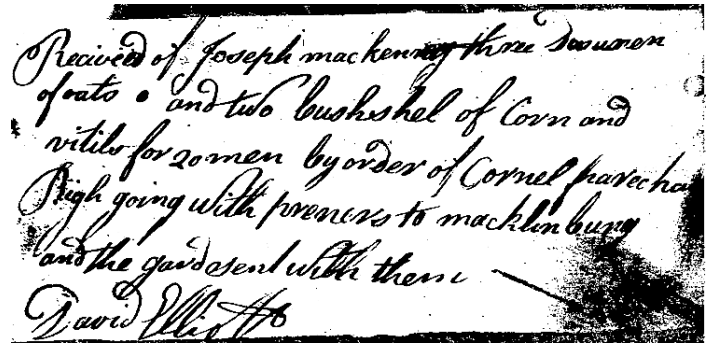 Recived of Joseph mackenny three Doumen
of oats and two bushshel of Corn and
vitils for 20 men by order of Cornel
high going with preners to macklinburg
and the gard sent with them
David Elliott